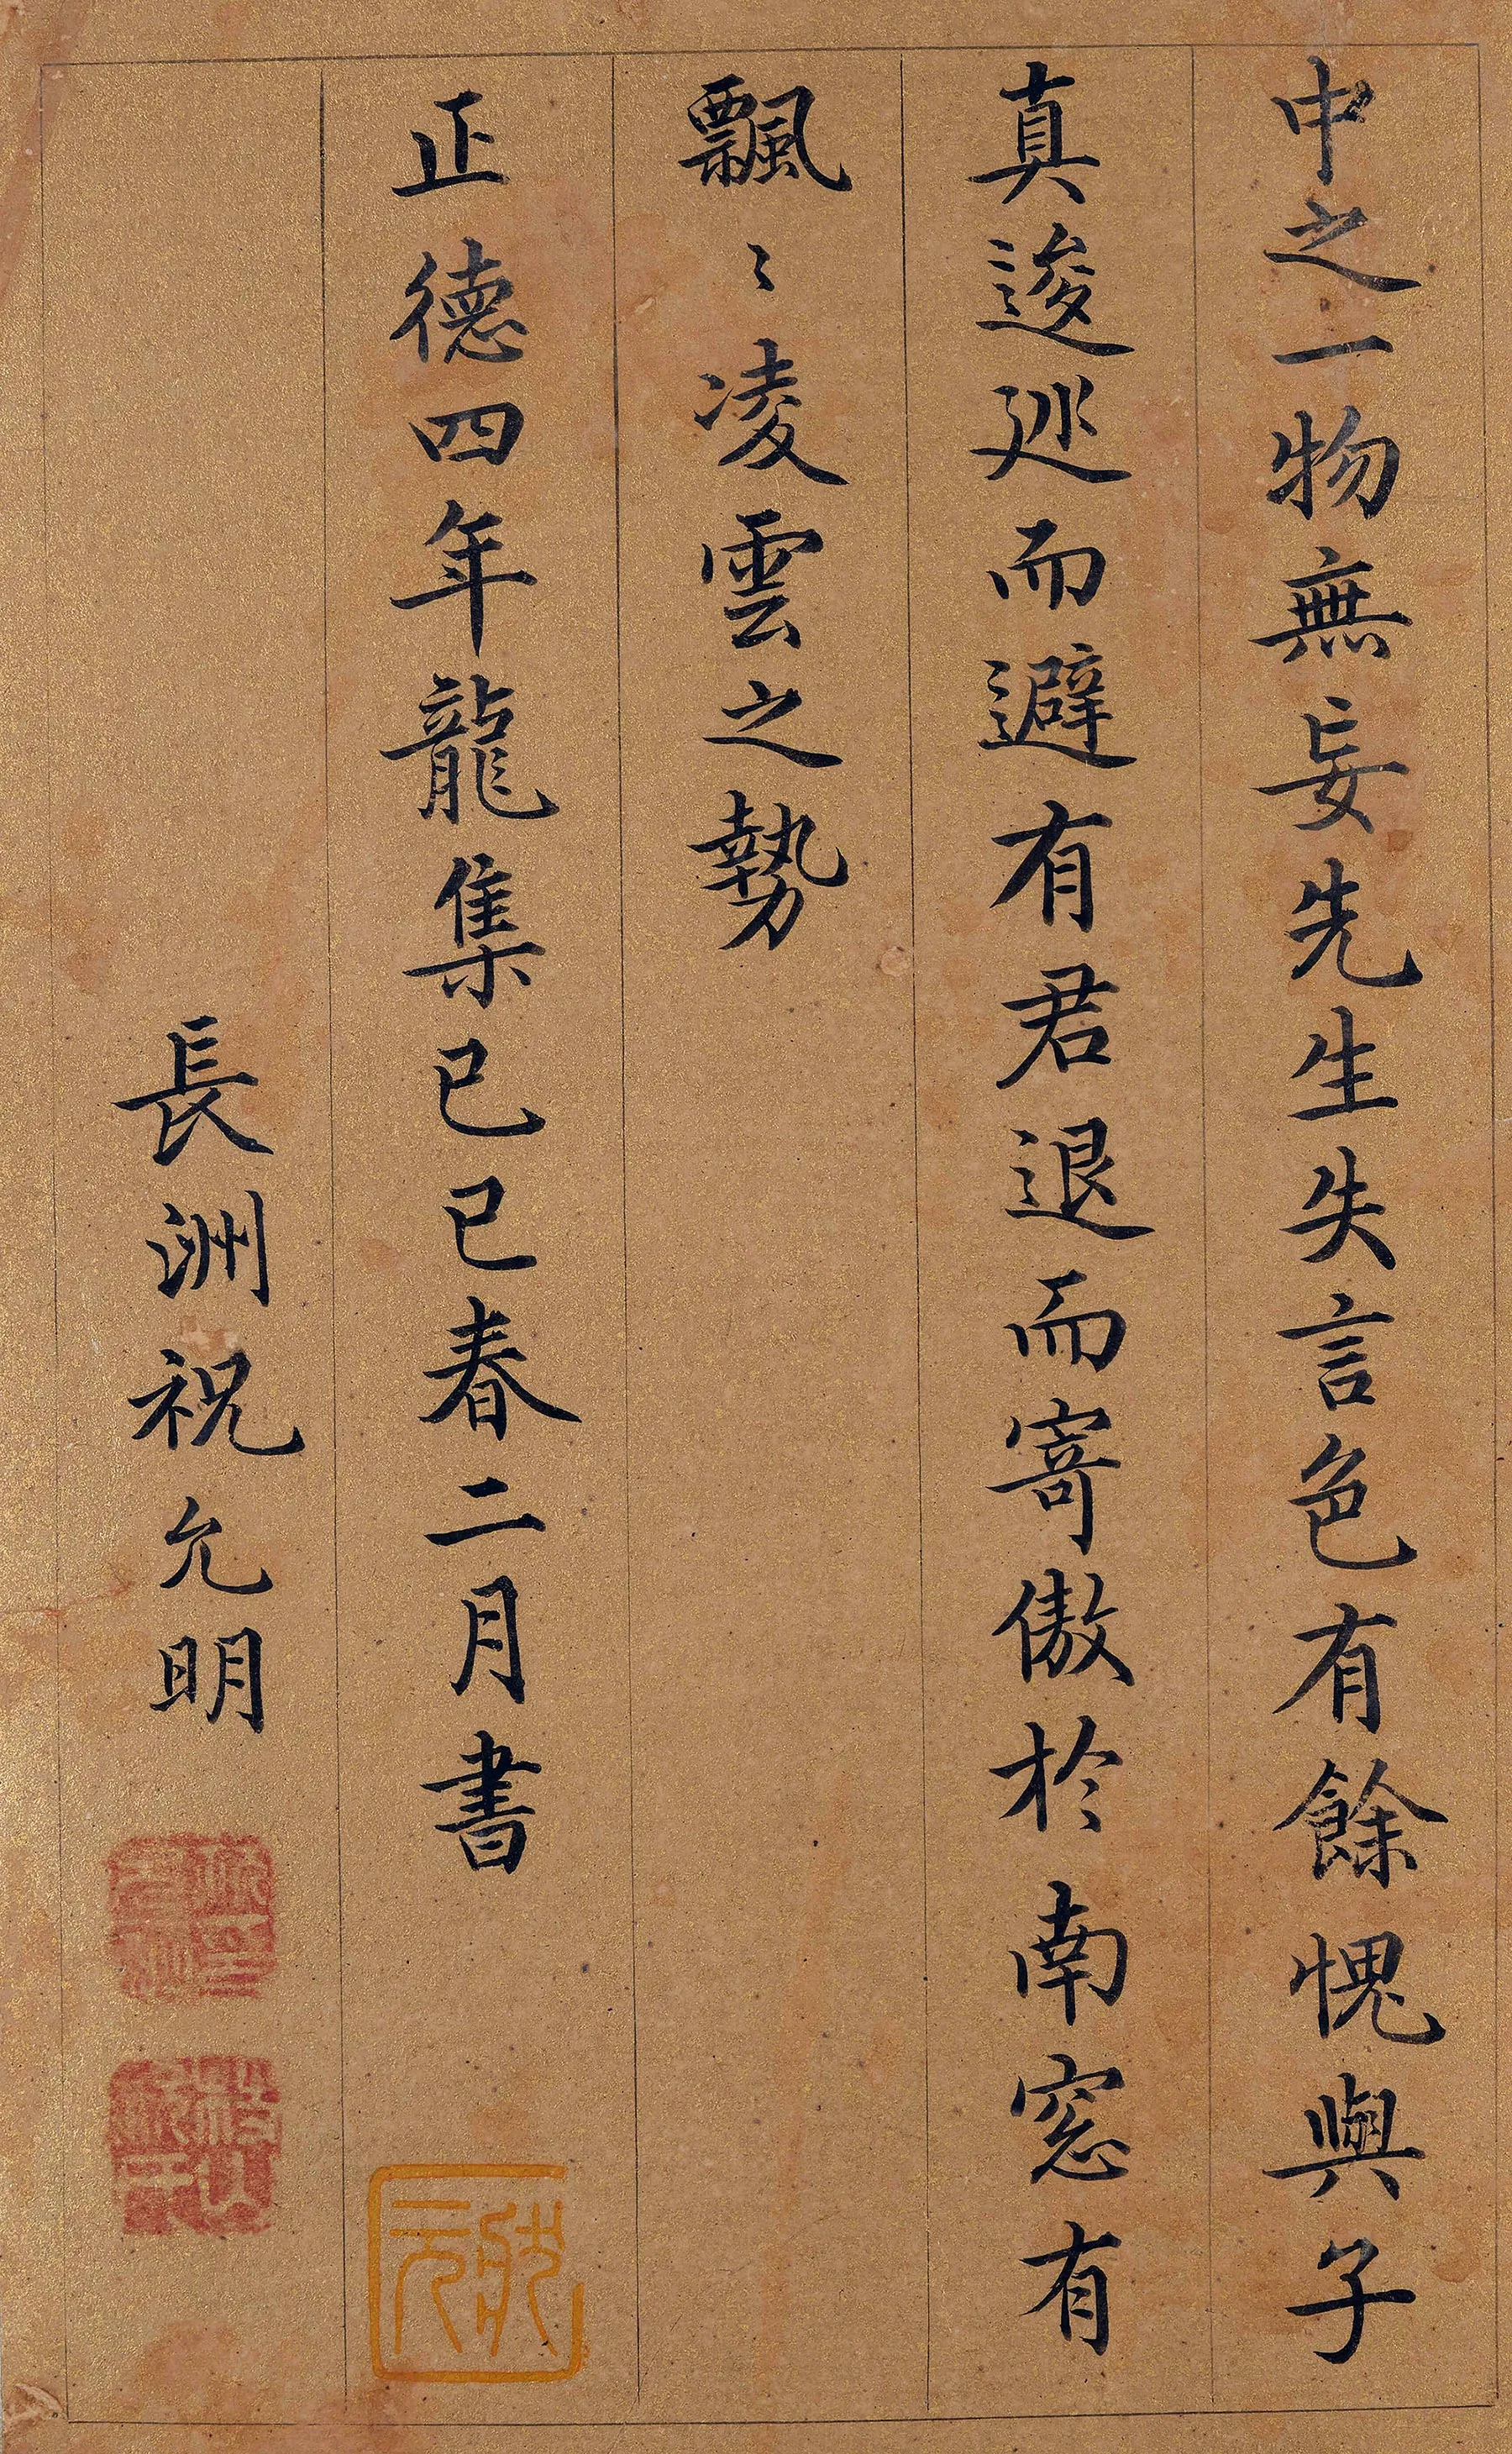 中之一物無妄先生失言色有餘愧與子
真逡廵而避有君退而寄傲於南窓有
飄〻凌雲之勢
正德四年龍集己巳春二月書
長洲祝允明